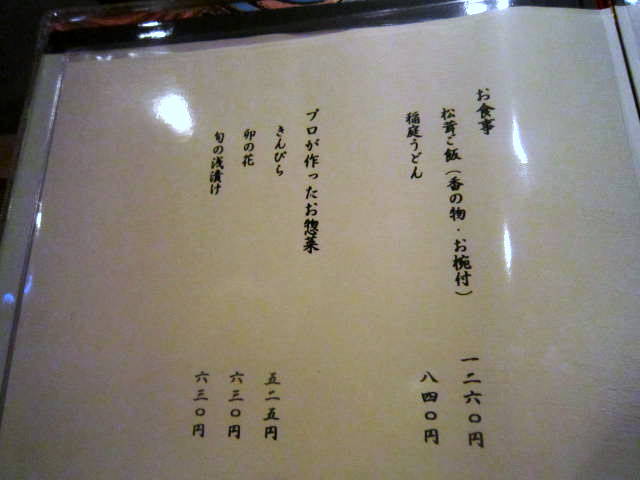 お食事
松茸ご飯(香の物・お椀付) 一二六〇円
稲庭うどん 八四〇円
プロが作ったお惣菜
きんぴら 五二五円
卯の花 六三〇円
旬の浅漬け 六三〇円